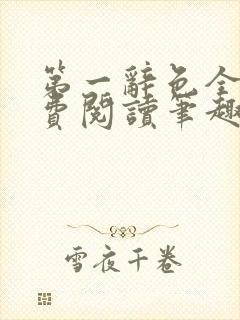 第一辭色全
費閱讀筆趣
雪夜千卷